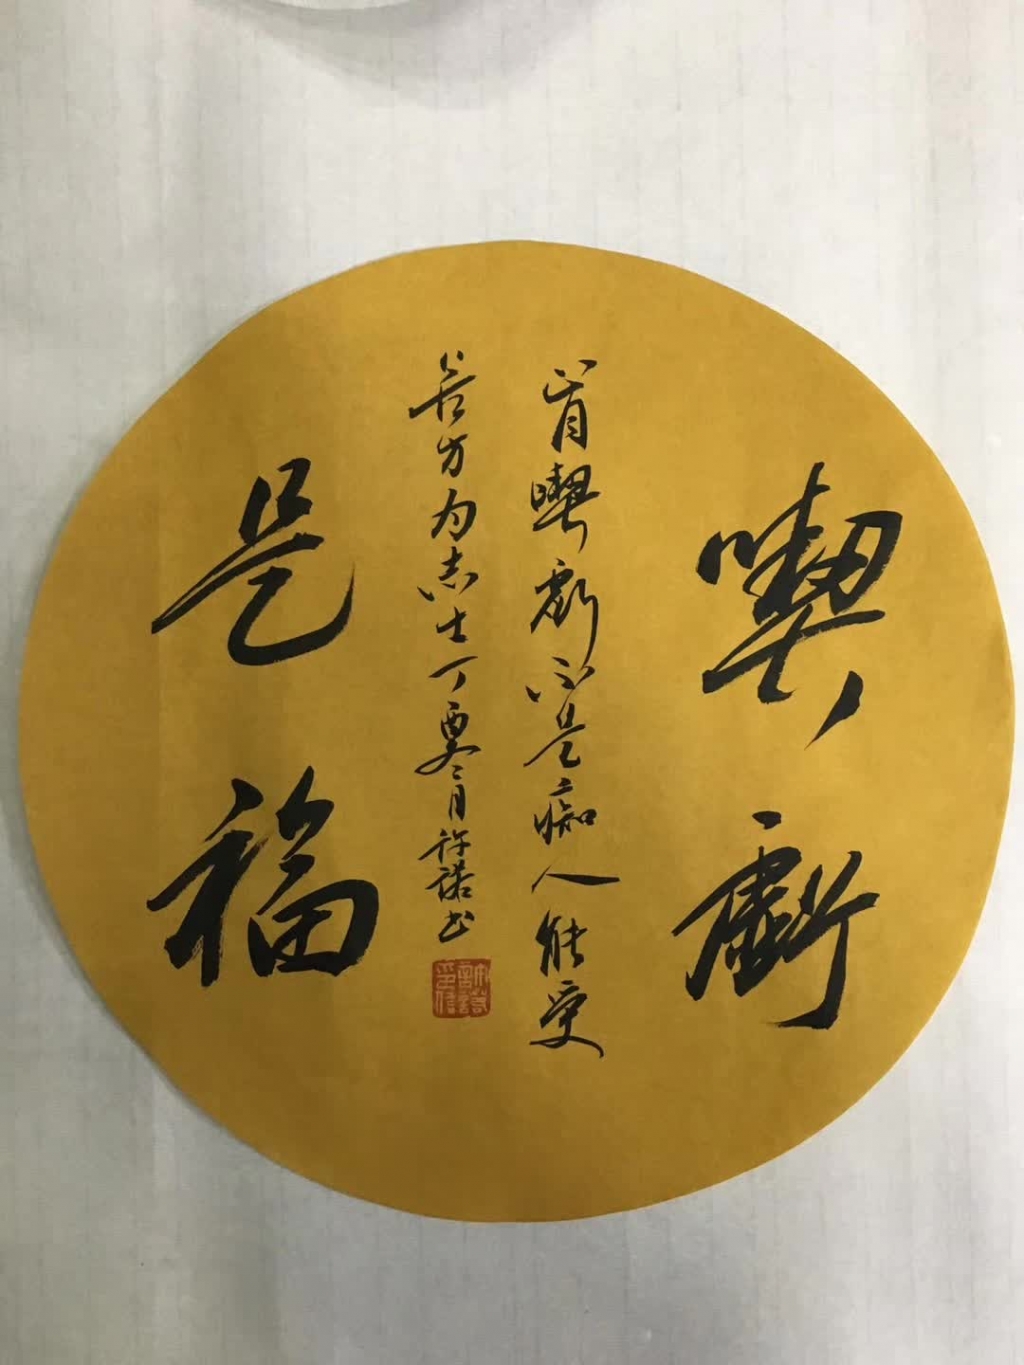 喫虧
是福
肯喫虧不是痴人能受
苦方为志士丁酉二月许诺书